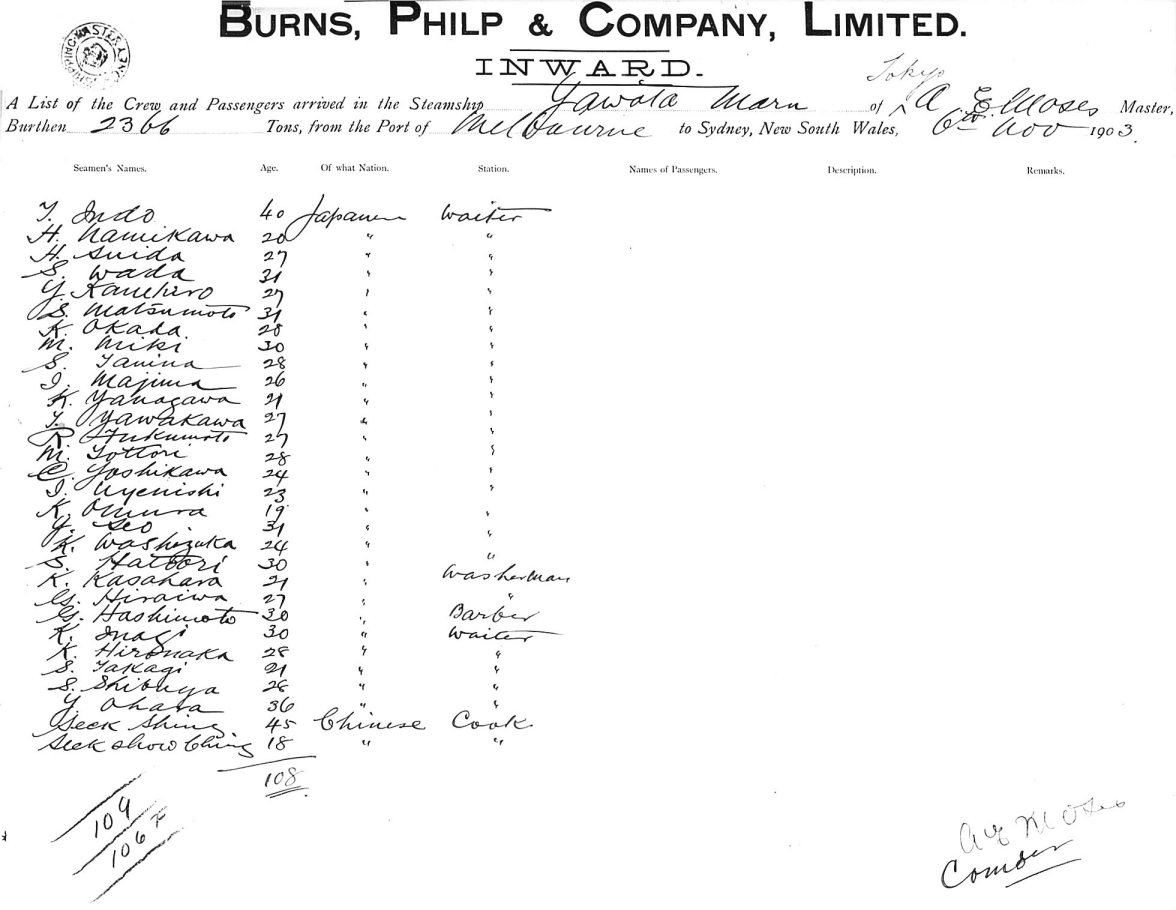 BURNS, PHILP & COMPANY, LIMITED.
SHIPPING MASTER
INWARD.
Tokyo
A List of the Crew and Passengers arrived in the Steamship Yawata Maru of ^ A E Moses Master,
Burthen 2366 Tons, from the Port of Melbourne to Sydney, New South Wales, 6th Nov 1903.
Seamen's Names. Age. Of what Nation. Station. Names of Passengers. Description. Remarks.
T. Indo 40 Japanese Waiter
H. Namikawa 20 " "
H. Suida 27 " "
S. Wada 31 " "
Y. Kanehiro 27 " "
S. Matsumoto 31 " "
K. Okada 28 " "
M. Miki 30 " "
S. Tanina 28 " "
I. Majima 26 " "
K. Yanagawa 21 " "
T. Yawakawa 27 " "
R Fukumoto 27 " "
M. Tottori 28 " "
C. Yoshikawa 24 " "
I. Uyenishi 23 " "
K. Omura 19 " "
Y. Seo 31 " "
K. Washizuka 24 " "
S. Hattori 30 " "
K. Kasahara 21 " Washerman
G. Hiraiwa 27 " "
G. Hashimoto 30 " Barber
K. Inagi 30 " Waiter
K. Hironaka 28 " "
S. Takagi 21 " "
S. Shibuya 28 " "
Y. Ohara 36 " "
Seek Shing 45 Chinese Cook
Seek Show Ching 18 " "
108
104
106
A E Moses
Comder